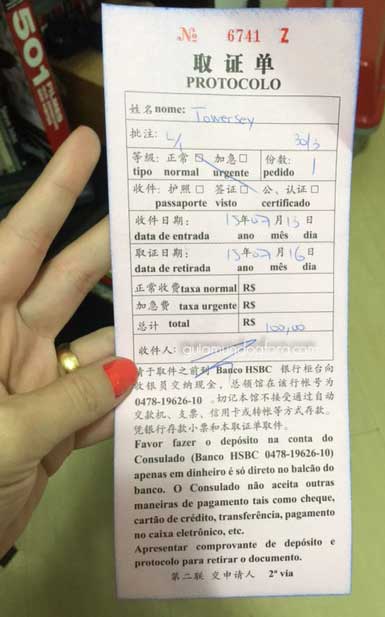 501
№ 6741 Z
取证单
PROTOCOLO
姓名nome: Towersey
批注: L/1 30/3
等级: 正常□ 加急□ 份数:
tipo normal urgente pedido 1
收件: 护照□ 签证□ 公、认证□
passaporte visto certificado
收件日期: 13年07月15日
data de entrada ano mês dia
取证日期: 13年07月16日
data de retirada ano mês dia
正常收费taxa normal R$
加急费 taxa urgente R$
总计 total R$ 100,00
收件人:
aturmadomundoafora.com
请于取件之前到 Banco HSBC 银行柜台向
收银员交纳现金，总领馆在该行帐号为
0478-19626-10 。切记本馆不接受通过自动
交款机、支票、信用卡或转帐等方式存款。
凭银行存款小票和本取证单取件。
Favor fazer o depósito na conta do
Consulado (Banco HSBC 0478-19626-10)
apenas em dinheiro é só direto no balcão do
banco. O Consulado não aceita outras
maneiras de pagamento tais como cheque,
cartão de crédito, transferência, pagamento
no caixa eletrônico, etc.
Apresentar comprovante de depósito e
protocolo para retirar o documento.
第二联 交申请人 2ª via